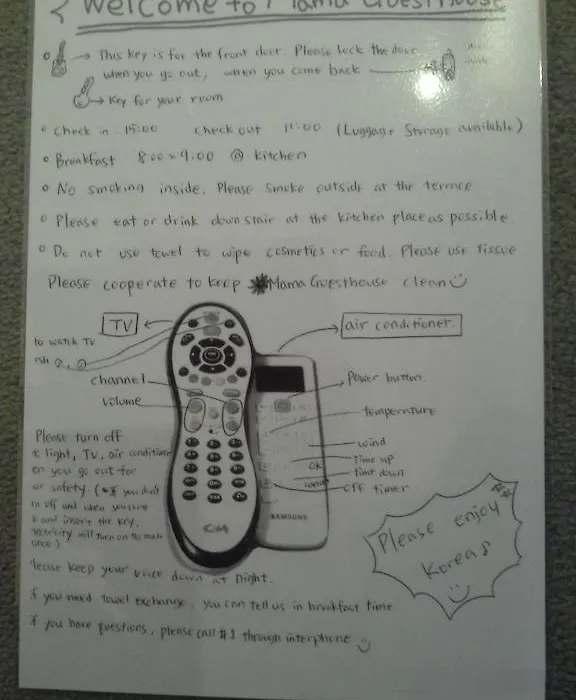 Welcome to Mama GuestHouse
This key is for the front door. Please lock the door
when you go out, when you come back
Key for your room
Check in 15:00 check out 11:00 (Luggage Storage available)
Breakfast 8:00~9:00 @ kitchen
No smoking inside. Please smoke outside at the terrace
Please eat or drink down stair at the kitchen place as possible.
Do not use towel to wipe cosmetics or food. Please use tissue
Please cooperate to keep Mama Guesthouse clean
TV
air conditioner.
to watch TV
channel
volume
Power button.
temperature
wind
time up
OK
time down
cancel
off timer
Please turn off
light, TV, air conditioner
you go out for
safety. (if you don't
off and when you come
and insert the key,
electricity will turn on
CM
SAMSUNG
Please enjoy
Korea♪
Please keep your voice down at night.
if you need towel exchange, you can tell us in breakfast time
if you have questions, please call #1 through interphone